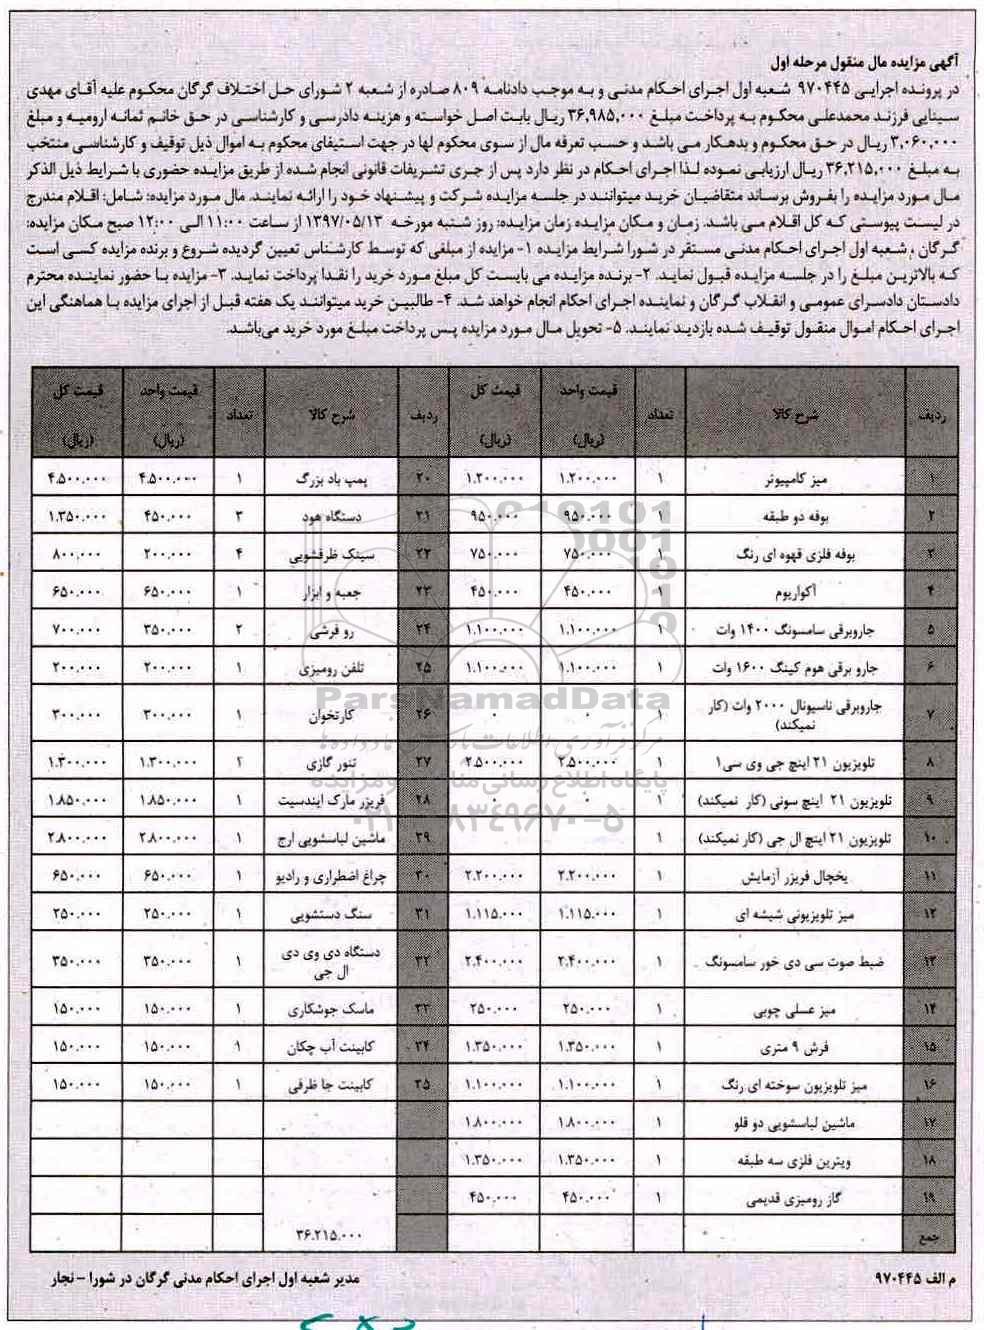 آگهی مزایده مال منقول مرحله اول
در پرونده اجرایی ۹۷۰۴۴۵ شعبه اول اجرای احکام مدنی و به موجب دادنامه ۸۰۹ صادره از شعبه ۲ شورای حل اختلاف گرگان محکوم علیه آقای مهدی
سینایی فرزند محمدعلی محکوم به پرداخت مبلغ ۳۶,۹۸۵,۰۰۰ ریال بابت اصل خواسته و هزینه دادرسی و کارشناسی در حق خانم ثمانه ارومیه و مبلغ
۳,۰۶۰,۰۰۰ ریال در حق محکوم و بدهکار می باشد و حسب تعرفه مال از سوی محکوم لها در جهت استیفای محکوم به اموال ذیل توقیف و کارشناسی منتخب
به مبلغ ۳۶,۲۱۵,۰۰۰ ریال ارزیابی نموده لذا اجرای احکام در نظر دارد پس از جری تشریفات قانونی انجام شده از طریق مزایده حضوری با شرایط ذیل الذکر
مال مورد مزایده را بفروش برساند متقاضیان خرید میتوانند در جلسه مزایده شرکت و پیشنهاد خود را ارائه نمایند. مال مورد مزایده: شامل: اقلام مندرج
در لیست پیوستی که کل اقلام می باشد. زمان و مکان مزایده زمان مزایده: روز شنبه مورخه ۱۳۹۷/۰۵/۱۳ از ساعت ۱۱:۰۰ الی ۱۲:۰۰ صبح مکان مزایده:
گرگان ، شعبه اول اجرای احکام مدنی مستقر در شورا شرایط مزایده ۱- مزایده از مبلغی که توسط کارشناس تعیین گردیده شروع و برنده مزایده کسی است
که بالاترین مبلغ را در جلسه مزایده قبول نماید. ۲- برنده مزایده می بایست کل مبلغ مورد خرید را نقدا پرداخت نماید. ۳- مزایده با حضور نماینده محترم
دادستان دادسرای عمومی و انقلاب گرگان و نماینده اجرای احکام انجام خواهد شد. ۴- طالبین خرید میتوانند یک هفته قبل از اجرای مزایده با هماهنگی این
اجرای احکام اموال منقول توقیف شده بازدید نمایند. ۵- تحویل مال مورد مزایده پس پرداخت مبلغ مورد خرید می‌باشد.
ردیف شرح کالا تعداد قیمت واحد (ریال) قیمت کل (ریال) ردیف شرح کالا تعداد قیمت واحد (ریال) قیمت کل (ریال)
۱ میز کامپیوتر ۱ ۱.۲۰۰.۰۰۰ ۱.۲۰۰.۰۰۰ ۲۰ پمپ باد بزرگ ۱ ۴.۵۰۰.۰۰۰ ۴.۵۰۰.۰۰۰
۲ بوفه دو طبقه ۱ ۹۵۰.۰۰۰ ۹۵۰.۰۰۰ ۲۱ دستگاه هود ۳ ۴۵۰.۰۰۰ ۱.۳۵۰.۰۰۰
۳ بوفه فلزی قهوه ای رنگ ۱ ۷۵۰.۰۰۰ ۷۵۰.۰۰۰ ۲۲ سینک ظرفشویی ۴ ۲۰۰.۰۰۰ ۸۰۰.۰۰۰
۴ آکواریوم ۱ ۴۵۰.۰۰۰ ۴۵۰.۰۰۰ ۲۳ جعبه و ابزار ۱ ۶۵۰.۰۰۰ ۶۵۰.۰۰۰
۵ جاروبرقی سامسونگ ۱۴۰۰ وات ۱ ۱.۱۰۰.۰۰۰ ۱.۱۰۰.۰۰۰ ۲۴ رو فرشی ۲ ۳۵۰.۰۰۰ ۷۰۰.۰۰۰
۶ جارو برقی هوم کینگ ۱۶۰۰ وات ۱ ۱.۱۰۰.۰۰۰ ۱.۱۰۰.۰۰۰ ۲۵ تلفن رومیزی ۱ ۲۰۰.۰۰۰ ۲۰۰.۰۰۰
۷ جاروبرقی ناسیونال ۲۰۰۰ وات (کار نمیکند) ۱ ۰ ۰ ۲۶ کارتخوان ۱ ۳۰۰.۰۰۰ ۳۰۰.۰۰۰
۸ تلویزیون ۲۱ اینچ جی وی سی ۱ ۲.۵۰۰.۰۰۰ ۲.۵۰۰.۰۰۰ ۲۷ تنور گازی ۱.۳۰۰.۰۰۰ ۱.۳۰۰.۰۰۰
۹ تلویزیون ۲۱ اینچ سونی (کار نمیکند) ۱ ۰ ۰ ۲۸ فریزر مارک ایندسیت ۱ ۱.۸۵۰.۰۰۰ ۱.۸۵۰.۰۰۰
۱۰ تلویزیون ۲۱ اینچ ال جی (کار نمیکند) ۱ ۲۹ ماشین لباسشویی ارج ۱ ۲.۸۰۰.۰۰۰ ۲.۸۰۰.۰۰۰
۱۱ یخچال فریزر آزمایش ۱ ۲.۲۰۰.۰۰۰ ۲.۲۰۰.۰۰۰ ۳۰ چراغ اضطراری و رادیو ۱ ۶۵۰.۰۰۰ ۶۵۰.۰۰۰
۱۲ میز تلویزیونی شیشه ای ۱ ۱.۱۱۵.۰۰۰ ۱.۱۱۵.۰۰۰ ۳۱ سنگ دستشویی ۱ ۲۵۰.۰۰۰ ۲۵۰.۰۰۰
۱۳ ضبط صوت سی دی خور سامسونگ ۱ ۲.۴۰۰.۰۰۰ ۲.۴۰۰.۰۰۰ ۳۲ دستگاه دی وی دی ال جی ۱ ۳۵۰.۰۰۰ ۳۵۰.۰۰۰
۱۴ میز عسلی چوبی ۱ ۲۵۰.۰۰۰ ۲۵۰.۰۰۰ ۳۳ ماسک جوشکاری ۱ ۱۵۰.۰۰۰ ۱۵۰.۰۰۰
۱۵ فرش ۹ متری ۱ ۱.۳۵۰.۰۰۰ ۱.۳۵۰.۰۰۰ ۳۴ کابینت آب چکان ۱ ۱۵۰.۰۰۰ ۱۵۰.۰۰۰
۱۶ میز تلویزیون سوخته ای رنگ ۱ ۱.۱۰۰.۰۰۰ ۱.۱۰۰.۰۰۰ ۳۵ کابینت جا ظرفی ۱ ۱۵۰.۰۰۰ ۱۵۰.۰۰۰
۱۷ ماشین لباسشویی دو قلو ۱ ۱.۸۰۰.۰۰۰ ۱.۸۰۰.۰۰۰
۱۸ ویترین فلزی سه طبقه ۱ ۱.۳۵۰.۰۰۰ ۱.۳۵۰.۰۰۰
۱۹ گاز رومیزی قدیمی ۱ ۴۵۰.۰۰۰ ۴۵۰.۰۰۰
جمع ۳۶.۲۱۵.۰۰۰
ParsNamadData
پایگاه اطلاع رسانی مناقصه و مزایده
م الف ۹۷۰۴۴۵
مدیر شعبه اول اجرای احکام مدنی گرگان در شورا - نجار